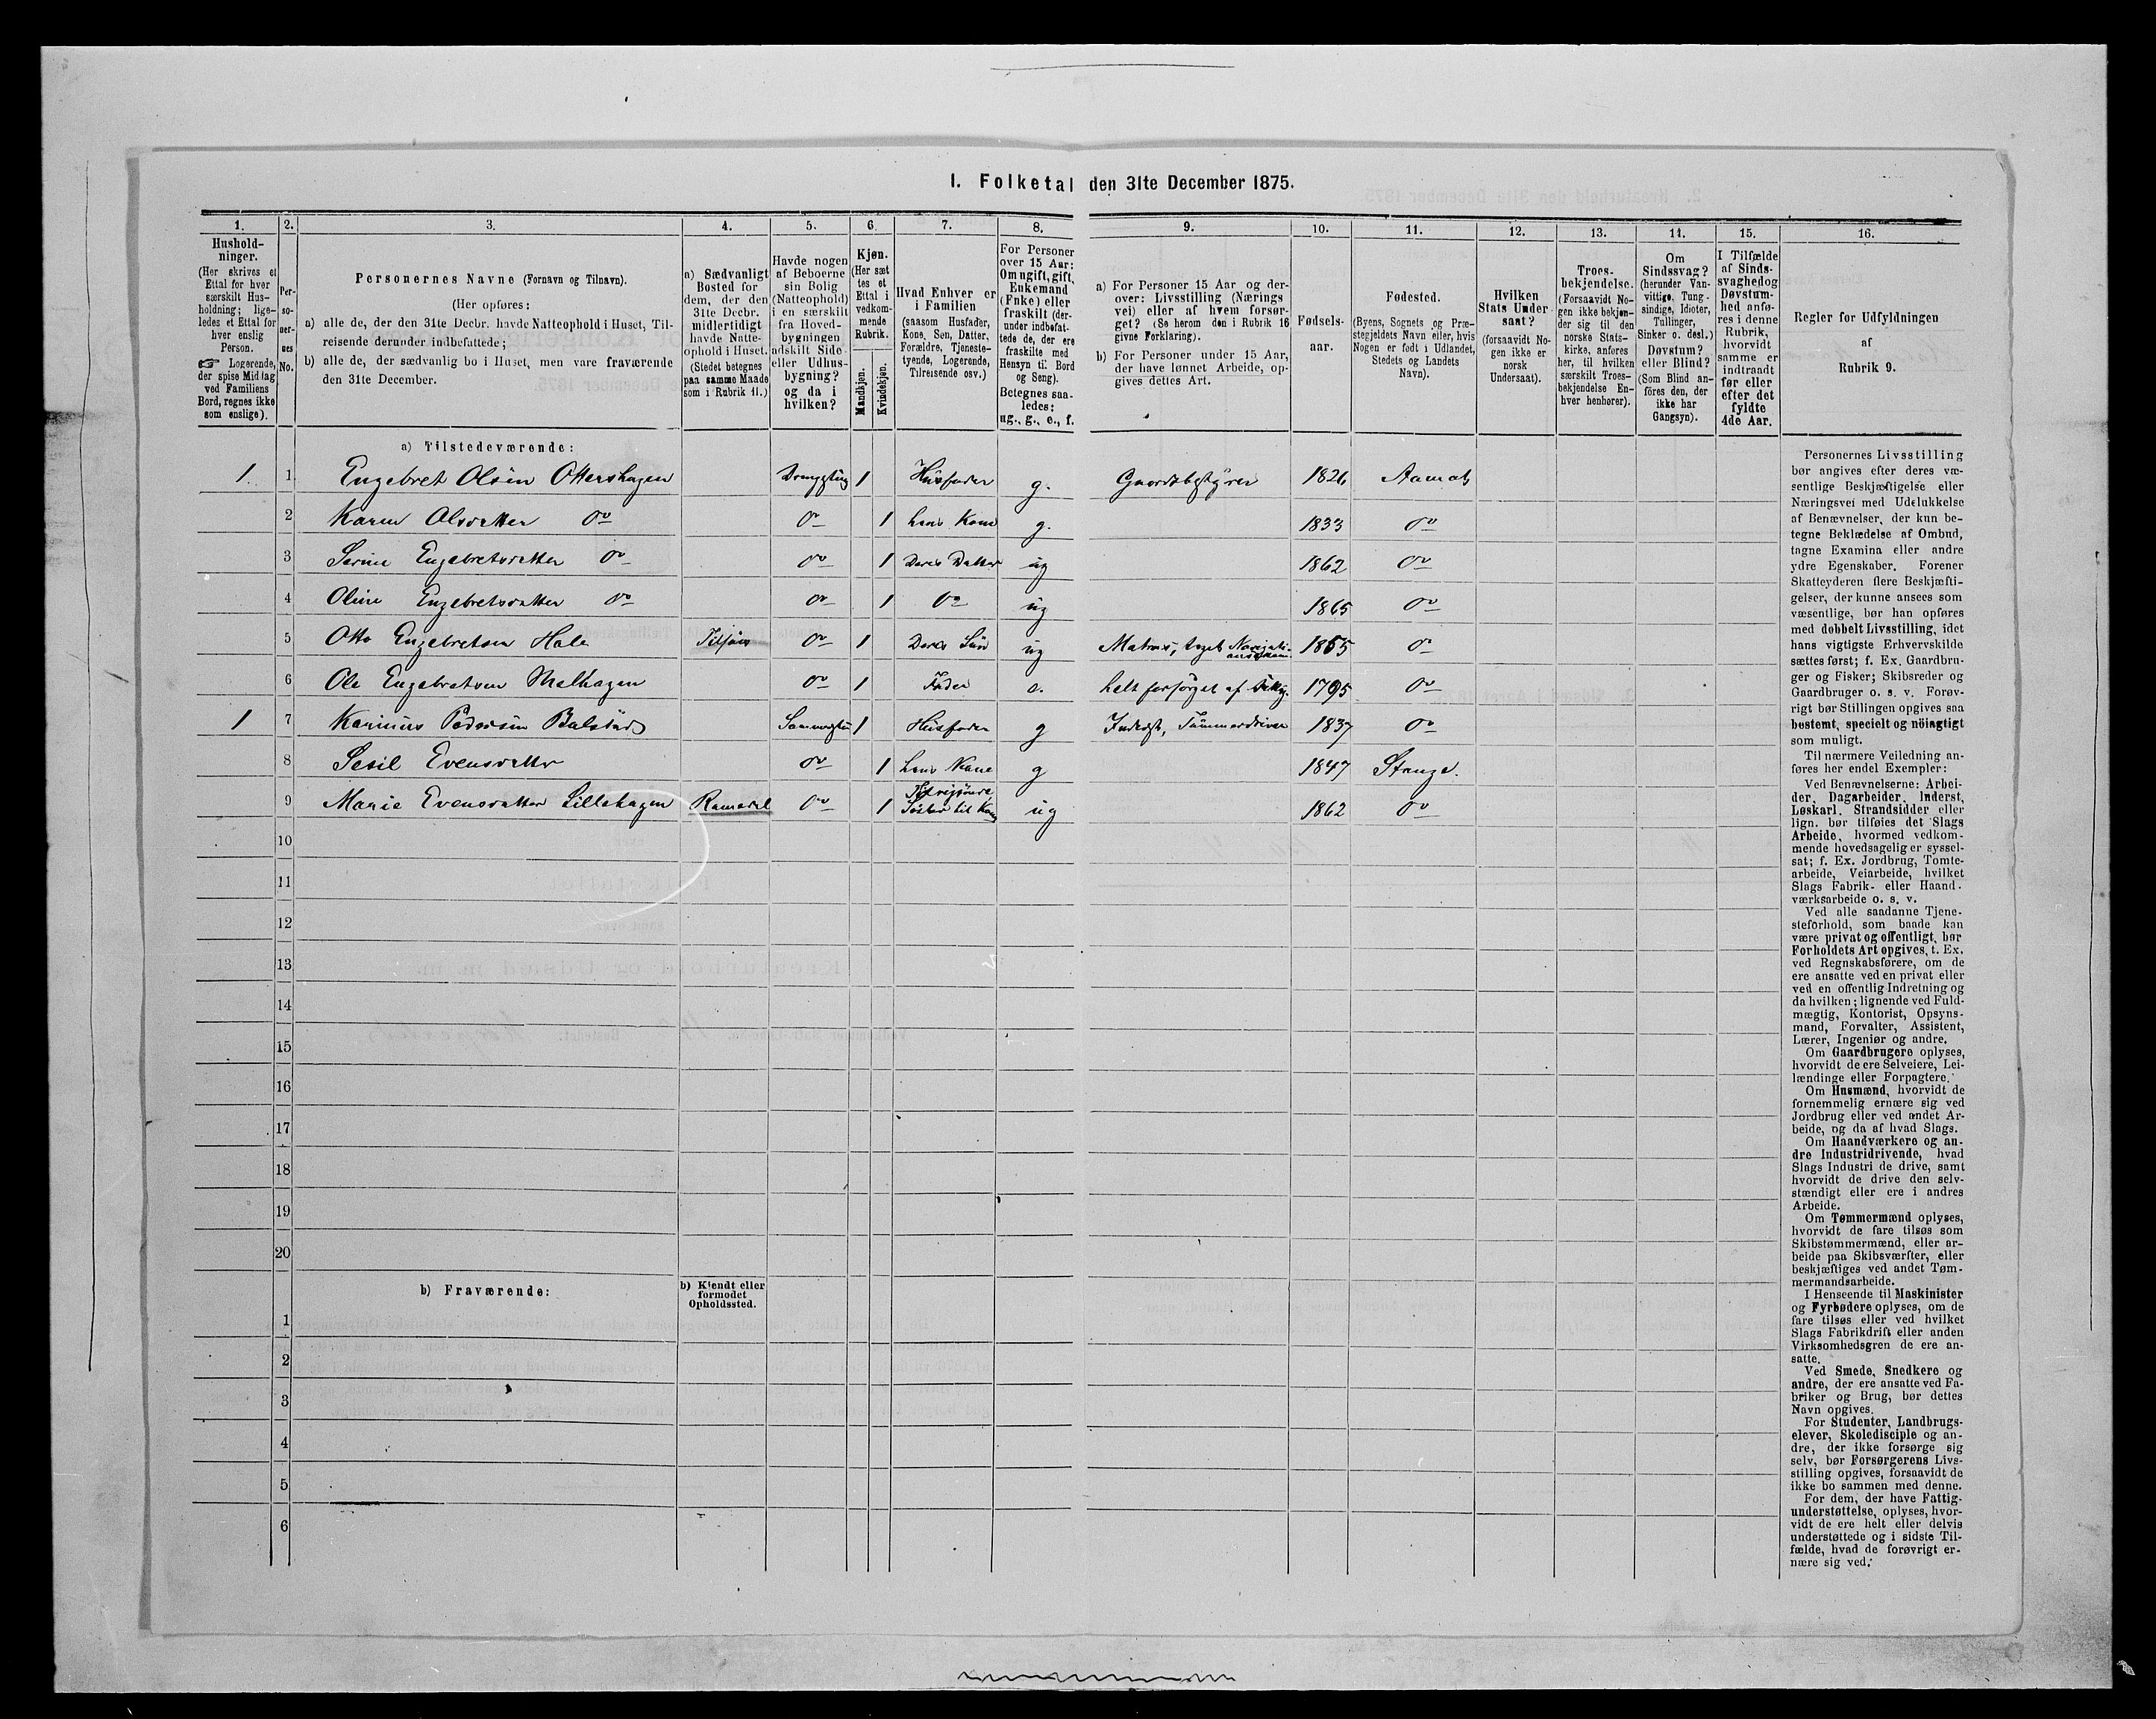 I. Folketal den 31te December 1875.
1. 2. 3. 4. 5. 6. 7. 8. 9. 10. 11. 12. 13. 14. 15. 16.
Hushold-
ninger.
(Her skrives et
Ettal for hver
særskilt Hus-
holdning; lige-
ledes et Ettal for
hver enslig
Person.
☞ Logerende,
der spise Middag
ved Familiens
Bord, regnes ikke
som enslige).
Per-
so-
ner-
nes
No.
Personernes Navne (Fornavn og Tilnavn).
(Her opføres:
a) alle de, der den 31te Decbr. havde Natteophold i Huset, Til-
reisende derunder indbefattede;
b) alle de, der sædvanlig bo i Huset, men vare fraværende
den 31te December.
a) Sædvanligt
Bosted for
dem, der den
31te Decbr.
midlertidigt
havde Natte-
ophold i Huset.
(Stedet betegnes
paa samme Maade
som i Rubrik 11.)
Havde nogen
af Beboerne
sin Bolig
(Natteophold)
i en særskilt
fra Hoved-
bygningen
adskilt Side-
eller Udhus-
bygning?
og da i
hvilken?
Kjøn.
(Her sæt
tes et
Ettal i
vedkom-
mende
Rubrik.
Mandkjøn.
Kvindekjøn.
Hvad Enhver er
i Familien
(saasom Husfader,
Kone, Søn, Datter,
Forældre, Tjeneste-
tyende, Logerende,
Tilreisende osv.)
For Personer
over 15 Aar:
Om ugift, gift,
Enkemand
(Enke) eller
fraskilt (der-
under indbefat-
tede de, der ere
fraskilte med
Hensyn til Bord
og Seng).
Betegnes saa-
ledes:
ug., g., e., f.
a) For Personer 15 Aar og der-
over: Livsstilling (Nærings
vei) eller af hvem forsør-
get? (Se herom den i Rubrik 16
givne Forklaring).
b) For Personer under 15 Aar,
der have lønnet Arbeide, op-
gives dettes Art.
Fødsels-
aar.
Fødested.
(Byens, Sognets og Præ-
stegjeldets Navn eller, hvis
Nogen er født i Udlandet,
Stedets og Landets
Navn).
Hvilken
Stats Under
saat?
(forsaavidt No-
gen ikke er
norsk
Undersaat).
Troes-
bekjendelse.
(Forsaavidt No-
gen ikke bekjen-
der sig til den
norske Stats-
kirke, anføres
her, til hvilken
særskilt Troes-
bekjendelse En-
hver henhører).
Om
Sindssvag?
(herunder Van-
vittige, Tung-
sindige, Idioter,
Tullinger,
Sinker o. desl.)
Døvstum?
eller Blind?
(Som Blind an-
føres den, der
ikke har
Gangsyn).
I Tilfælde
af Sinds-
svaghed og
Døvstum-
hed anfø-
res i denne
Rubrik,
hvorvidt
samme er
indtraadt
før eller
efter det
fyldte
4de Aar.
Regler for Udfyldningen
af
Rubrik 9.
a) Tilstedeværende:
1 1 Engebret Olsen Ottershagen 1 Husfader g. Gaardsbestyrer 1826 Aamot
2 Karen Olsdatter do do 1 hans Kone g. 1833 do
3 Engebretsdatter do do 1 Deres Datter ug 1862 do
4 Oline Engebretsdatter do do 1 do ug 1865 do
5 Otto Engebretsen do 1 Deres Søn ug Matros, 1855 do
6 Ole Engebretsen do 1 Fader e. helt forsørget af 1795 do
1 7 Karinus Pedersen 1 Husfader g Inderst, Tømmerdriver 1837 do
8 Evensdatter do 1 hans Kone g 1847 Stange.
9 Marie Evensdatter Lillehagen do 1 Søster til Kone ug 1862 do
10
11
12
13
14
15
16
17
18
19
20
b) Fraværende:
b) Kjendt eller
formodet
Opholdssted.
1
2
3
4
5
6
Personernes Livsstilling
bør angives efter deres væ-
sentlige Beskjæftigelse eller
Næringsvei med Udelukkelse
af Benævnelser, der kun be-
tegne Beklædelse af Ombud,
tagne Examina eller andre
ydre Egenskaber. Forener
Skatteyderen flere Beskjæfti-
gelser, der kunne ansees som
væsentlige, bør han opføres
med dobbelt Livsstilling, idet
hans vigtigste Erhvervskilde
sættes først; f. Ex. Gaardbru-
ger og Fisker; Skibsreder og
Gaardbruger o. s. v. Forøv-
rigt bør Stillingen opgives saa
bestemt, specielt og nøiagtigt
som muligt.
Til nærmere Veiledning an-
føres her endel Exempler:
Ved Benævnelserne: Arbei-
der, Dagarbeider, Inderst,
Løskarl, Strandsidder eller
lign. bør tilføies det Slags
Arbeide, hvormed vedkom-
mende hovedsagelig er syssel-
sat; f. Ex. Jordbrug, Tomte-
arbeide, Veiarbeide, hvilket
Slags Fabrik- eller Haand-
værksarbeide o. s. v.
Ved alle saadanne Tjene-
steforhold, som baade kan
være privat og offentligt, bør
Forholdets Art opgives, t. Ex.
ved Regnskabsførere, om de
ere ansatte ved en privat eller
ved en offentlig Indretning og
da hvilken; lignende ved Fuld-
mægtig, Kontorist, Opsyns-
mand, Forvalter, Assistent,
Lærer, Ingeniør og andre.
Om Gaardbrugere oplyses,
hvorvidt de ere Selveiere, Lei-
lændinge eller Forpagtere.
Om Husmænd, hvorvidt de
fornemmelig ernære sig ved
Jordbrug eller ved andet Ar-
beide, og da af hvad Slags.
Om Haandværkere og an-
dre Industridrivende, hvad
Slags Industri de drive, samt
hvorvidt de drive den selv-
stændigt eller ere i andres
Arbeide.
Om Tømmermænd oplyses,
hvorvidt de fare tilsøs som
Skibstømmermænd, eller ar-
beide paa Skibsværfter, eller
beskjæftiges ved andet Tøm-
mermandsarbeide.
I Henseende til Maskinister
og Fyrbødere oplyses, om de
fare tilsøs eller ved hvilket
Slags Fabrikdrift eller anden
Virksomhedsgren de ere an-
satte.
Ved Smede, Snedkere og
andre, der ere ansatte ved Fa-
briker og Brug, bør dettes
Navn opgives.
For Studenter, Landbrugs-
elever, Skoledisciple og an-
dre, der ikke forsørge sig
selv, bør Forsørgerens Livs-
stilling opgives, forsaavidt de
ikke bo sammen med denne.
For dem, der have Fattig-
understøttelse, oplyses, hvor-
vidt de ere helt eller delvis
understøttede og i sidste Til-
fælde, hvad de forøvrigt er-
nære sig ved.